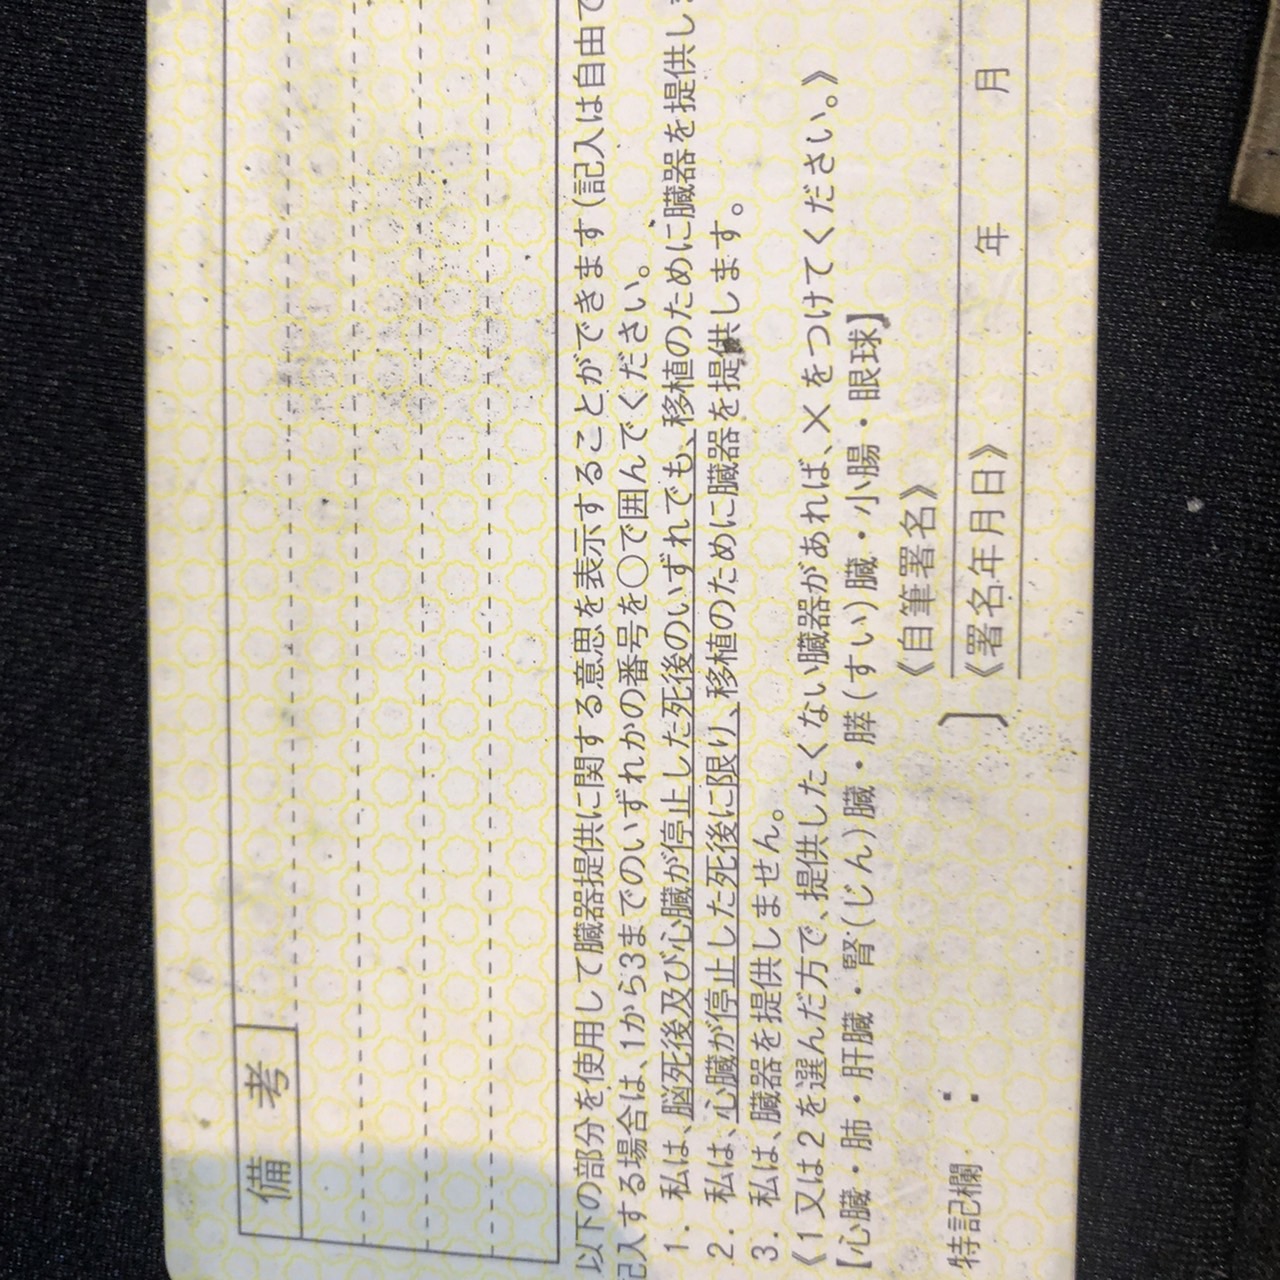 備考
以下の部分を使用して臓器提供に関する意思を表示することができます(記入は自由で
記入する場合は、1から3までのいずれかの番号を〇で囲んでください。
1. 私は、脳死後及び心臓が停止した死後のいずれでも、移植のために臓器を提供しま
2. 私は、心臓が停止した死後に限り、移植のために臓器を提供します。
3. 私は、臓器を提供しません。
《1又は2を選んだ方で、提供したくない臓器があれば、×をつけてください。》
【心臓・肺・肝臓・腎(じん)臓・膵(すい)臓・小腸・眼球】
《自筆署名》
特記欄: 〕
《署名年月日》 年 月